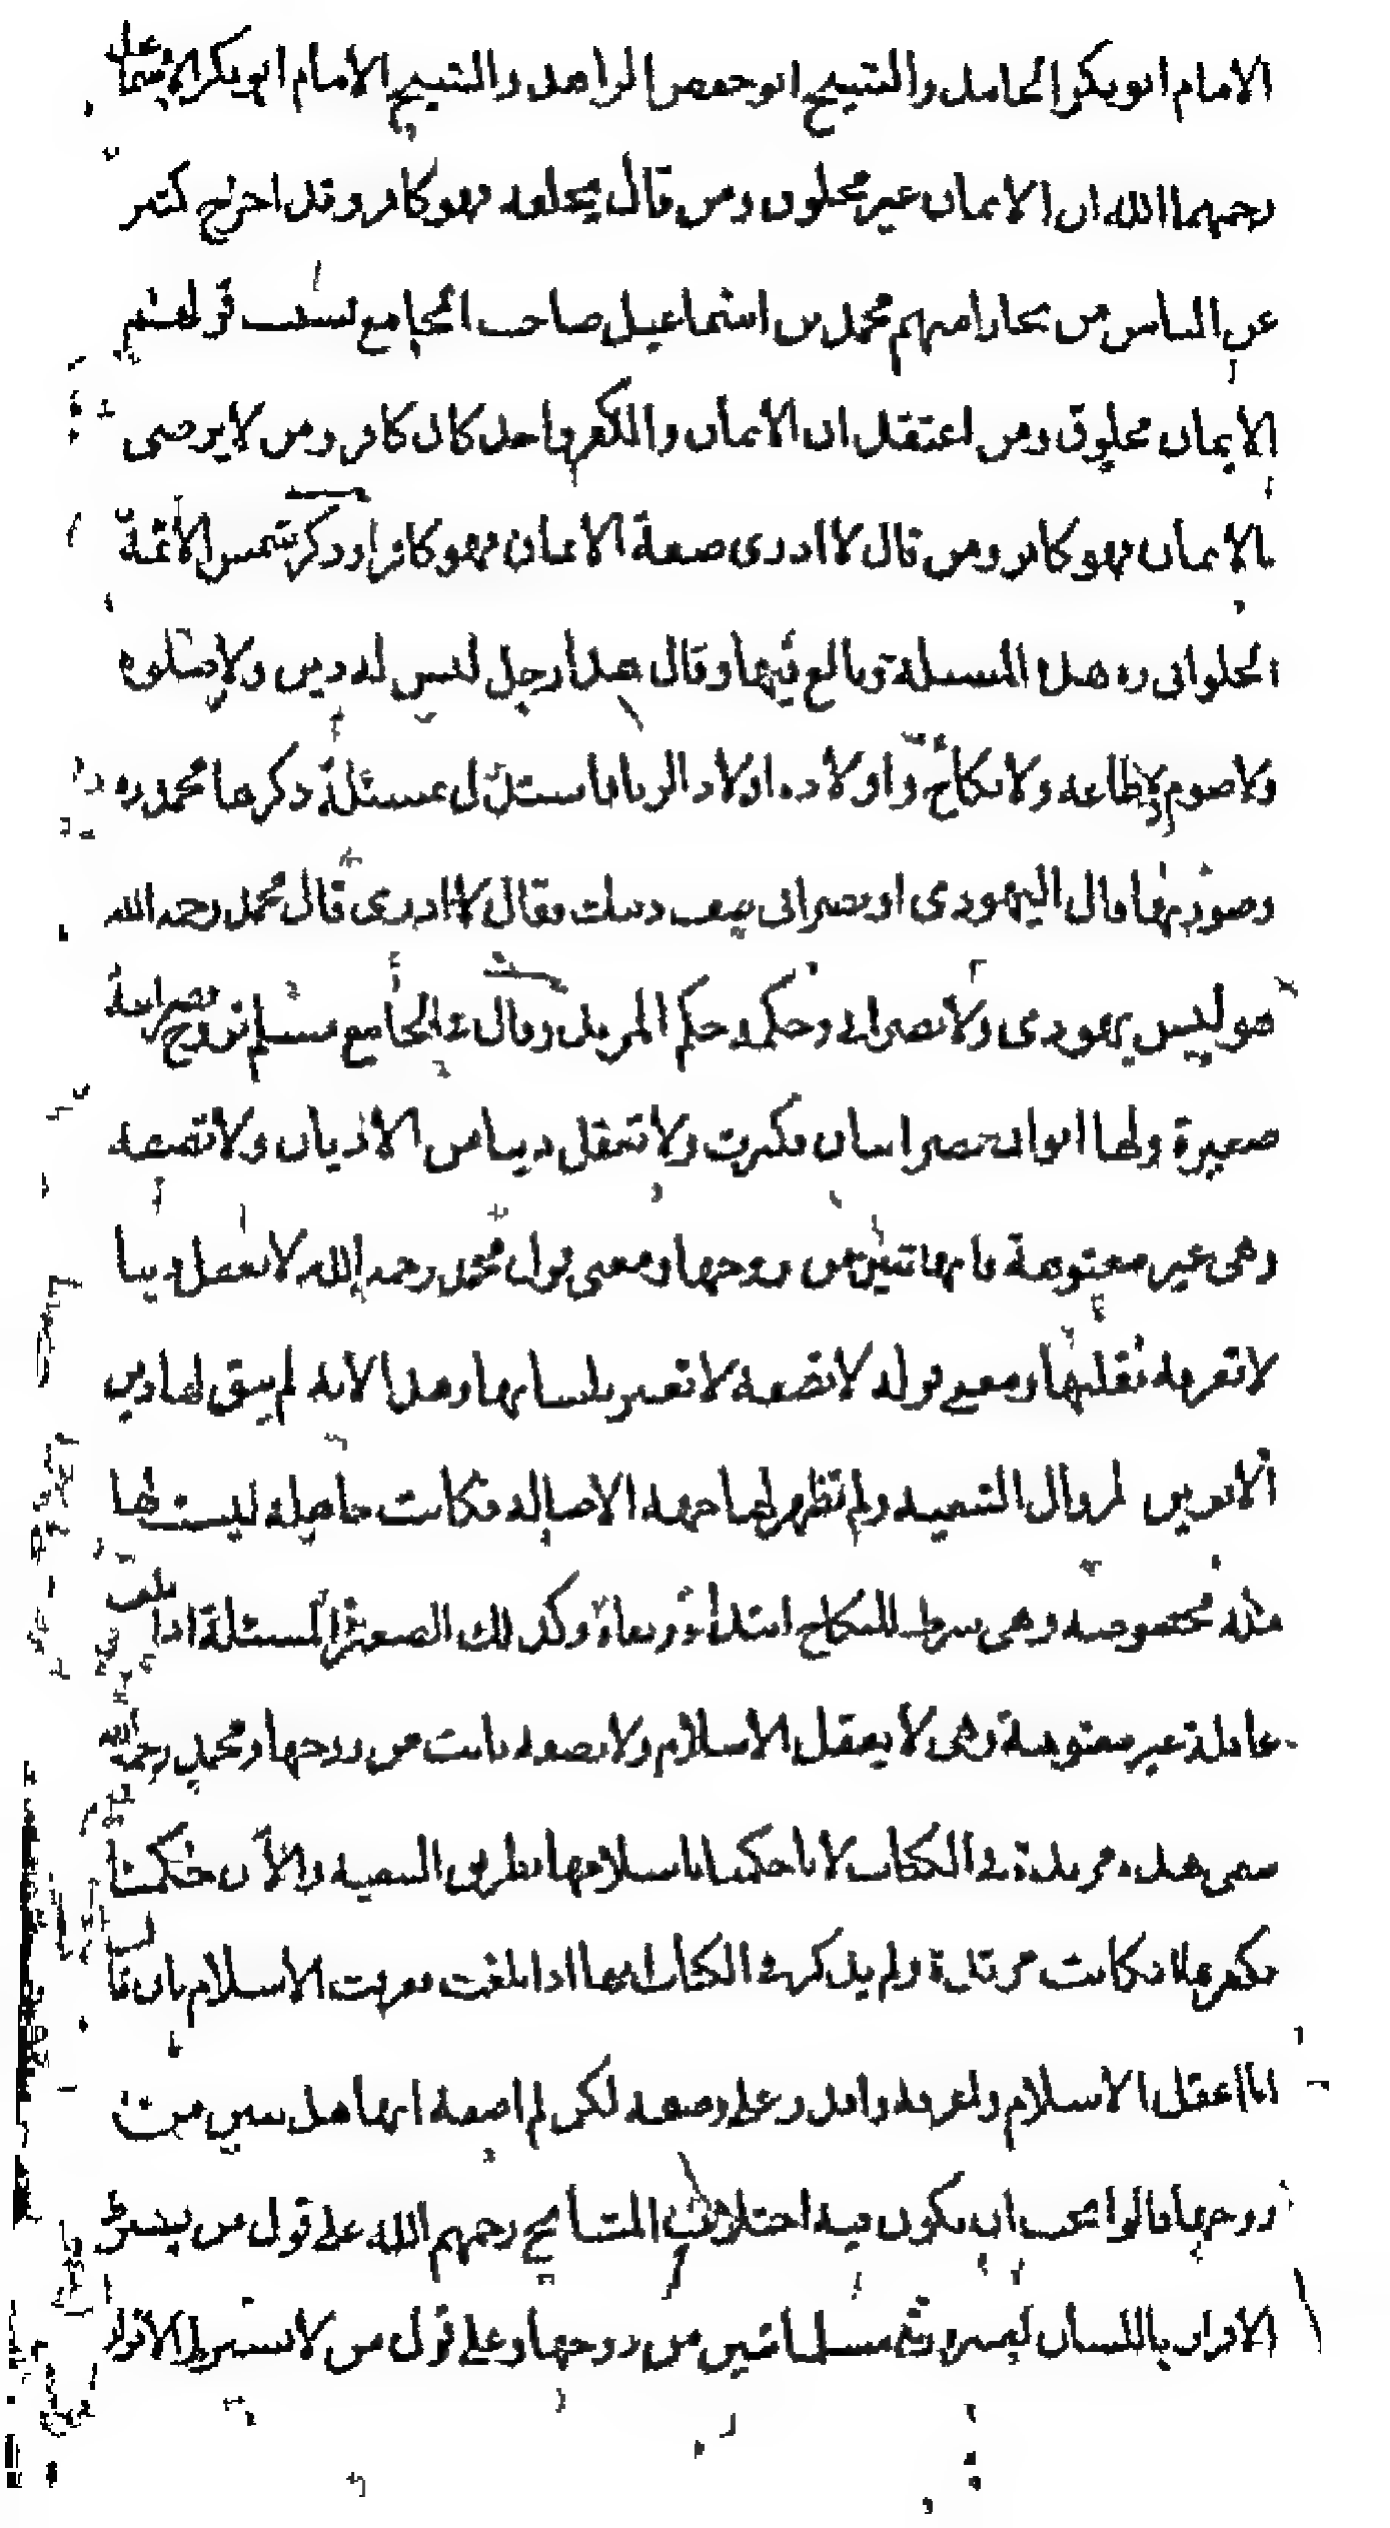 الامام ابو بكر الحامد والشيخ ابو حفص الزاهد والشيخ الامام ابو بكر الاسماعيلى
رحمهما الله ان الايمان غير مخلوق ومن قال بخلقه فهو كافر وقد اخرج كثير
من الناس من بخارا منهم محمد بن اسماعيل صاحب الجامع بسبب قولهم
الايمان مخلوق ومن اعتقد ان الايمان والكفر واحد كان كافر ومن لا يرضى
بالايمان فهو كافر ومن قال لا ادرى صفة الايمان فهو كافر وذكر شمس الأئمة
الحلوانى ره هذه المسئلة وبالغ فيها وقال هذا رجل ليس له دين ولا صلوة
ولا صوم ولا طاعة ولا نكاح واولاده اولاد الزنا فاستدل بمسئلة ذكرها محمد ره
وصورتها قال اليهودى او نصرانى صف دينك فقال لا ادرى قال محمد رحمه الله
هو ليس يهودى ولا نصرانى وحكمه حكم المرتد وقال فى الجامع مسلم تزوج نصرانية
صغيرة ولها ابوان نصرانيان فكبرت ولا تعقل دينا من الاديان ولا تصفه
وهى غير معتوهة فانها تبين من زوجها ومعنى قول محمد رحمه الله لا تعقل دينا
لا تعرفه بقلبها ومعنى قوله لا تصفه لا تعبر بلسانها وهذا لانه لم يبق لها دين
الابوين لزوال التبعية ولم تظهر لها جهة الاصالة فكانت جاهلة ليست لها
ملة مخصوصة وهى شرط للنكاح ابتداء وبقاء وكذلك الصغيرة المسئلة اذا بلغت
عاقلة غير معتوهة وهى لا يعقل الاسلام ولا تصفه بانت من زوجها ومحمد رحمه الله
سمى هذه مرتدة فى الكتاب لانا حكمنا باسلامها بطريق التبعية والآن حكمنا
بكفرها فكانت مرتدة ولم يذكر فى الكتاب انها اذا بلغت فعرفت الاسلام بان قالت
انا اعقل الاسلام واعرفه واقدر على وصفه لكن لم اصفه انها هل تبين من
زوجها قالوا يجب ان يكون فيه اختلاف المشايخ رحمهم الله على قول من يشترط
الاقرار باللسان ليصير مسلما تبين من زوجها وعلى قول من لا يشترط الاقرار